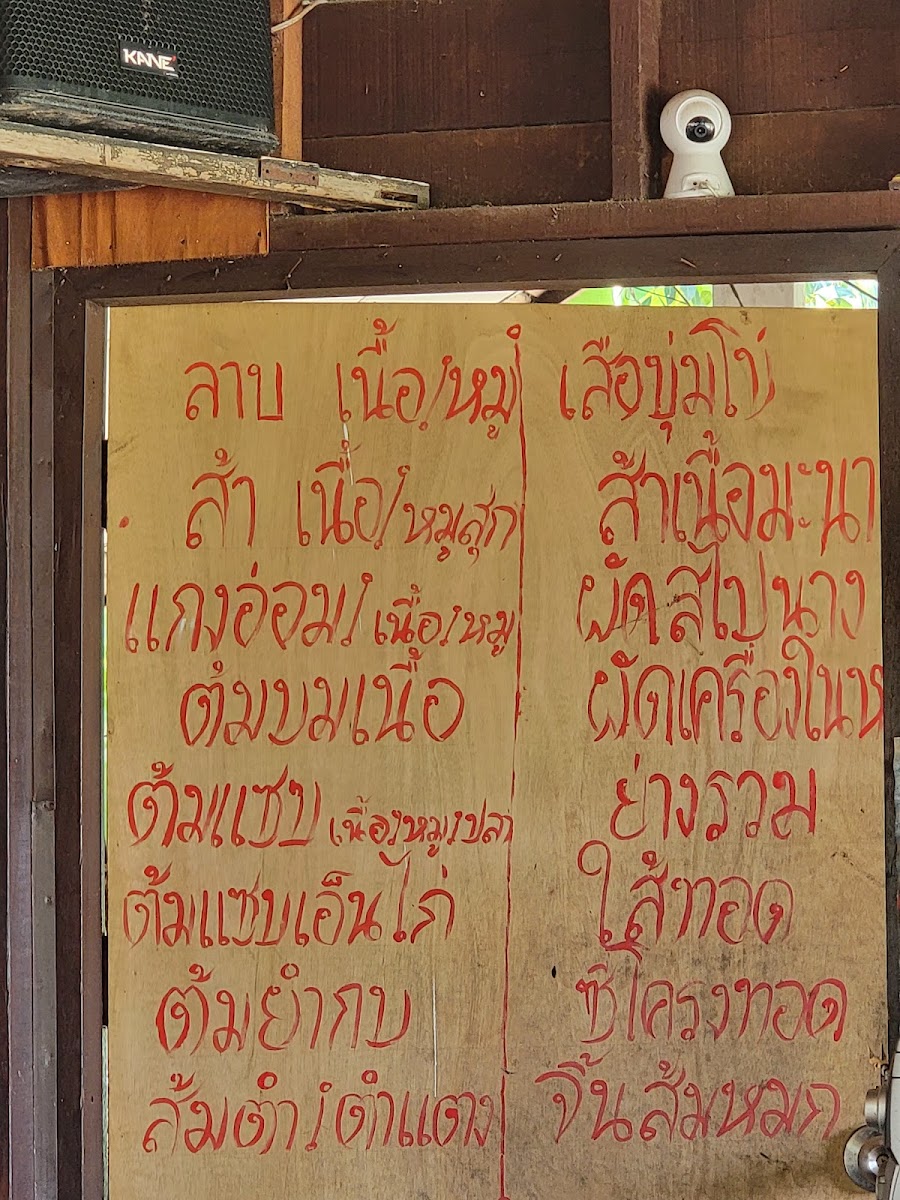 KANE
ลาบ เนื้อ/หมู
ส้า เนื้อ/หมูสุก
แกงอ่อม/เนื้อ/หมู
ต้มขมเนื้อ
ต้มแซบ เนื้อ/หมู/ปลา
ต้มแซบเอ็นไก่
ต้มยำกบ
ส้มตำ/ตำแตง
ส้าเนื้อมะนา
ผัด
ผัดเครื่องใน
ย่างรวม
ไส้ทอด
ซี่โครงทอด
จิ้นส้มหมก